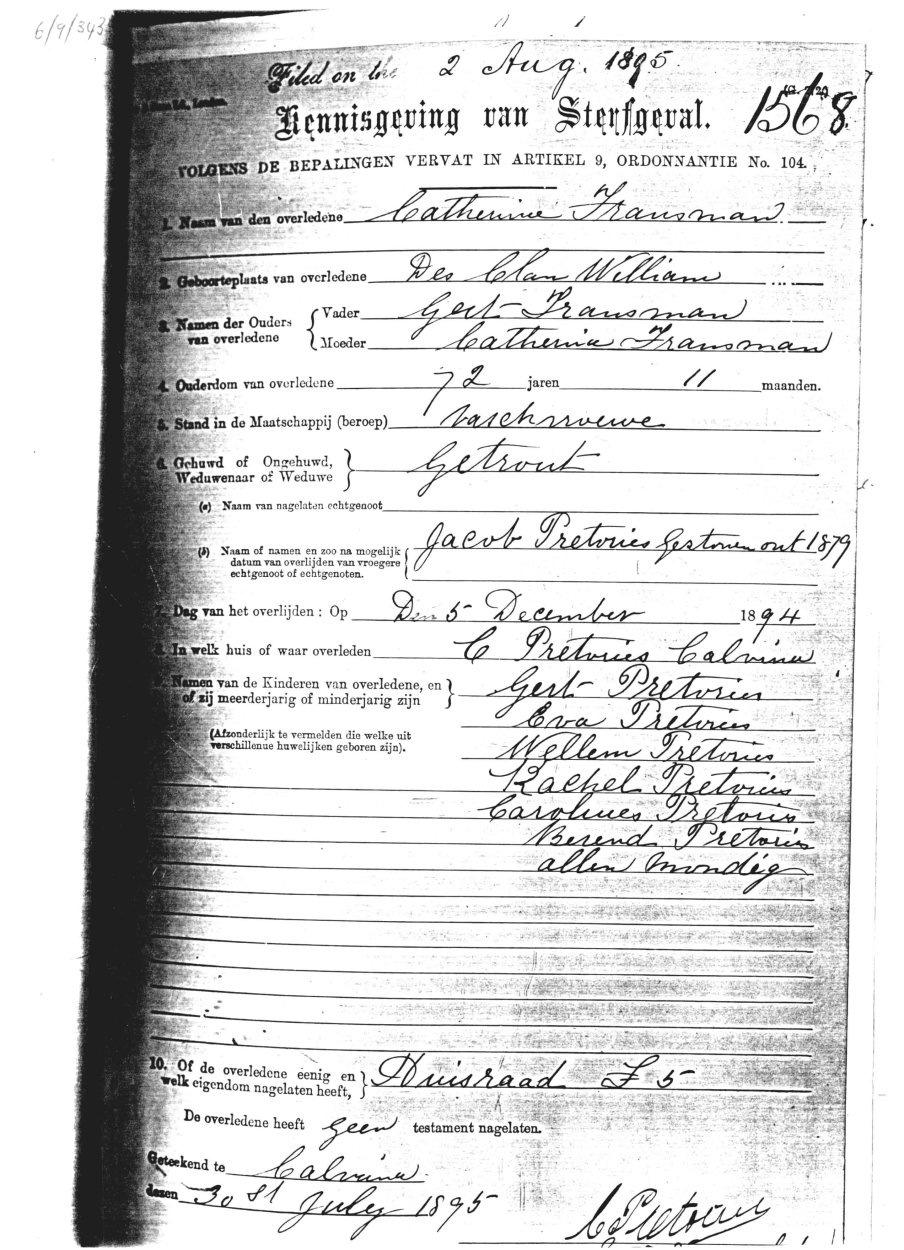 6/9/343
Filed on the 2 Aug. 1895.
1568.
Kennisgeving van Sterfgeval.
VOLGENS DE BEPALINGEN VERVAT IN ARTIKEL 9, ORDONNANTIE No. 104.
1. Naam van den overledene Catherina Fransman
2. Geboorteplaats van overledene Des Clan William
3. Namen der Ouders van overledene { Vader Gert Fransman
Moeder Catherina Fransman
4. Ouderdom van overledene 72 jaren 11 maanden.
5. Stand in de Maatschappij (beroep)
6. Gehuwd of Ongehuwd, } Getrout
Weduwenaar of Weduwe
(a) Naam van nagelaten echtgenoot
(b) Naam of namen en zoo na mogelijk { Jacob Pretories Gestorven ont 1879
datum van overlijden van vroegere
echtgenoot of echtgenoten.
7. Dag van het overlijden : Op Den 5 December 1894
8. In welk huis of waar overleden C Pretories Calvina
9. Namen van de Kinderen van overledene, en } Gert Pretories
of zij meerderjarig of minderjarig zijn
Eva Pretories
(Afzonderlijk te vermelden die welke uit
verschillenue huwelijken geboren zijn).
Wellem Pretories
Rachel Pretories
Carolines Pretories
Berend Pretories
allen mondég
10. Of de overledene eenig en } Huisraad £ 5
welk eigendom nagelaten heeft,
De overledene heeft Geen testament nagelaten.
Geteekend te Calvina
dezen 30st July 1895
C Pretories